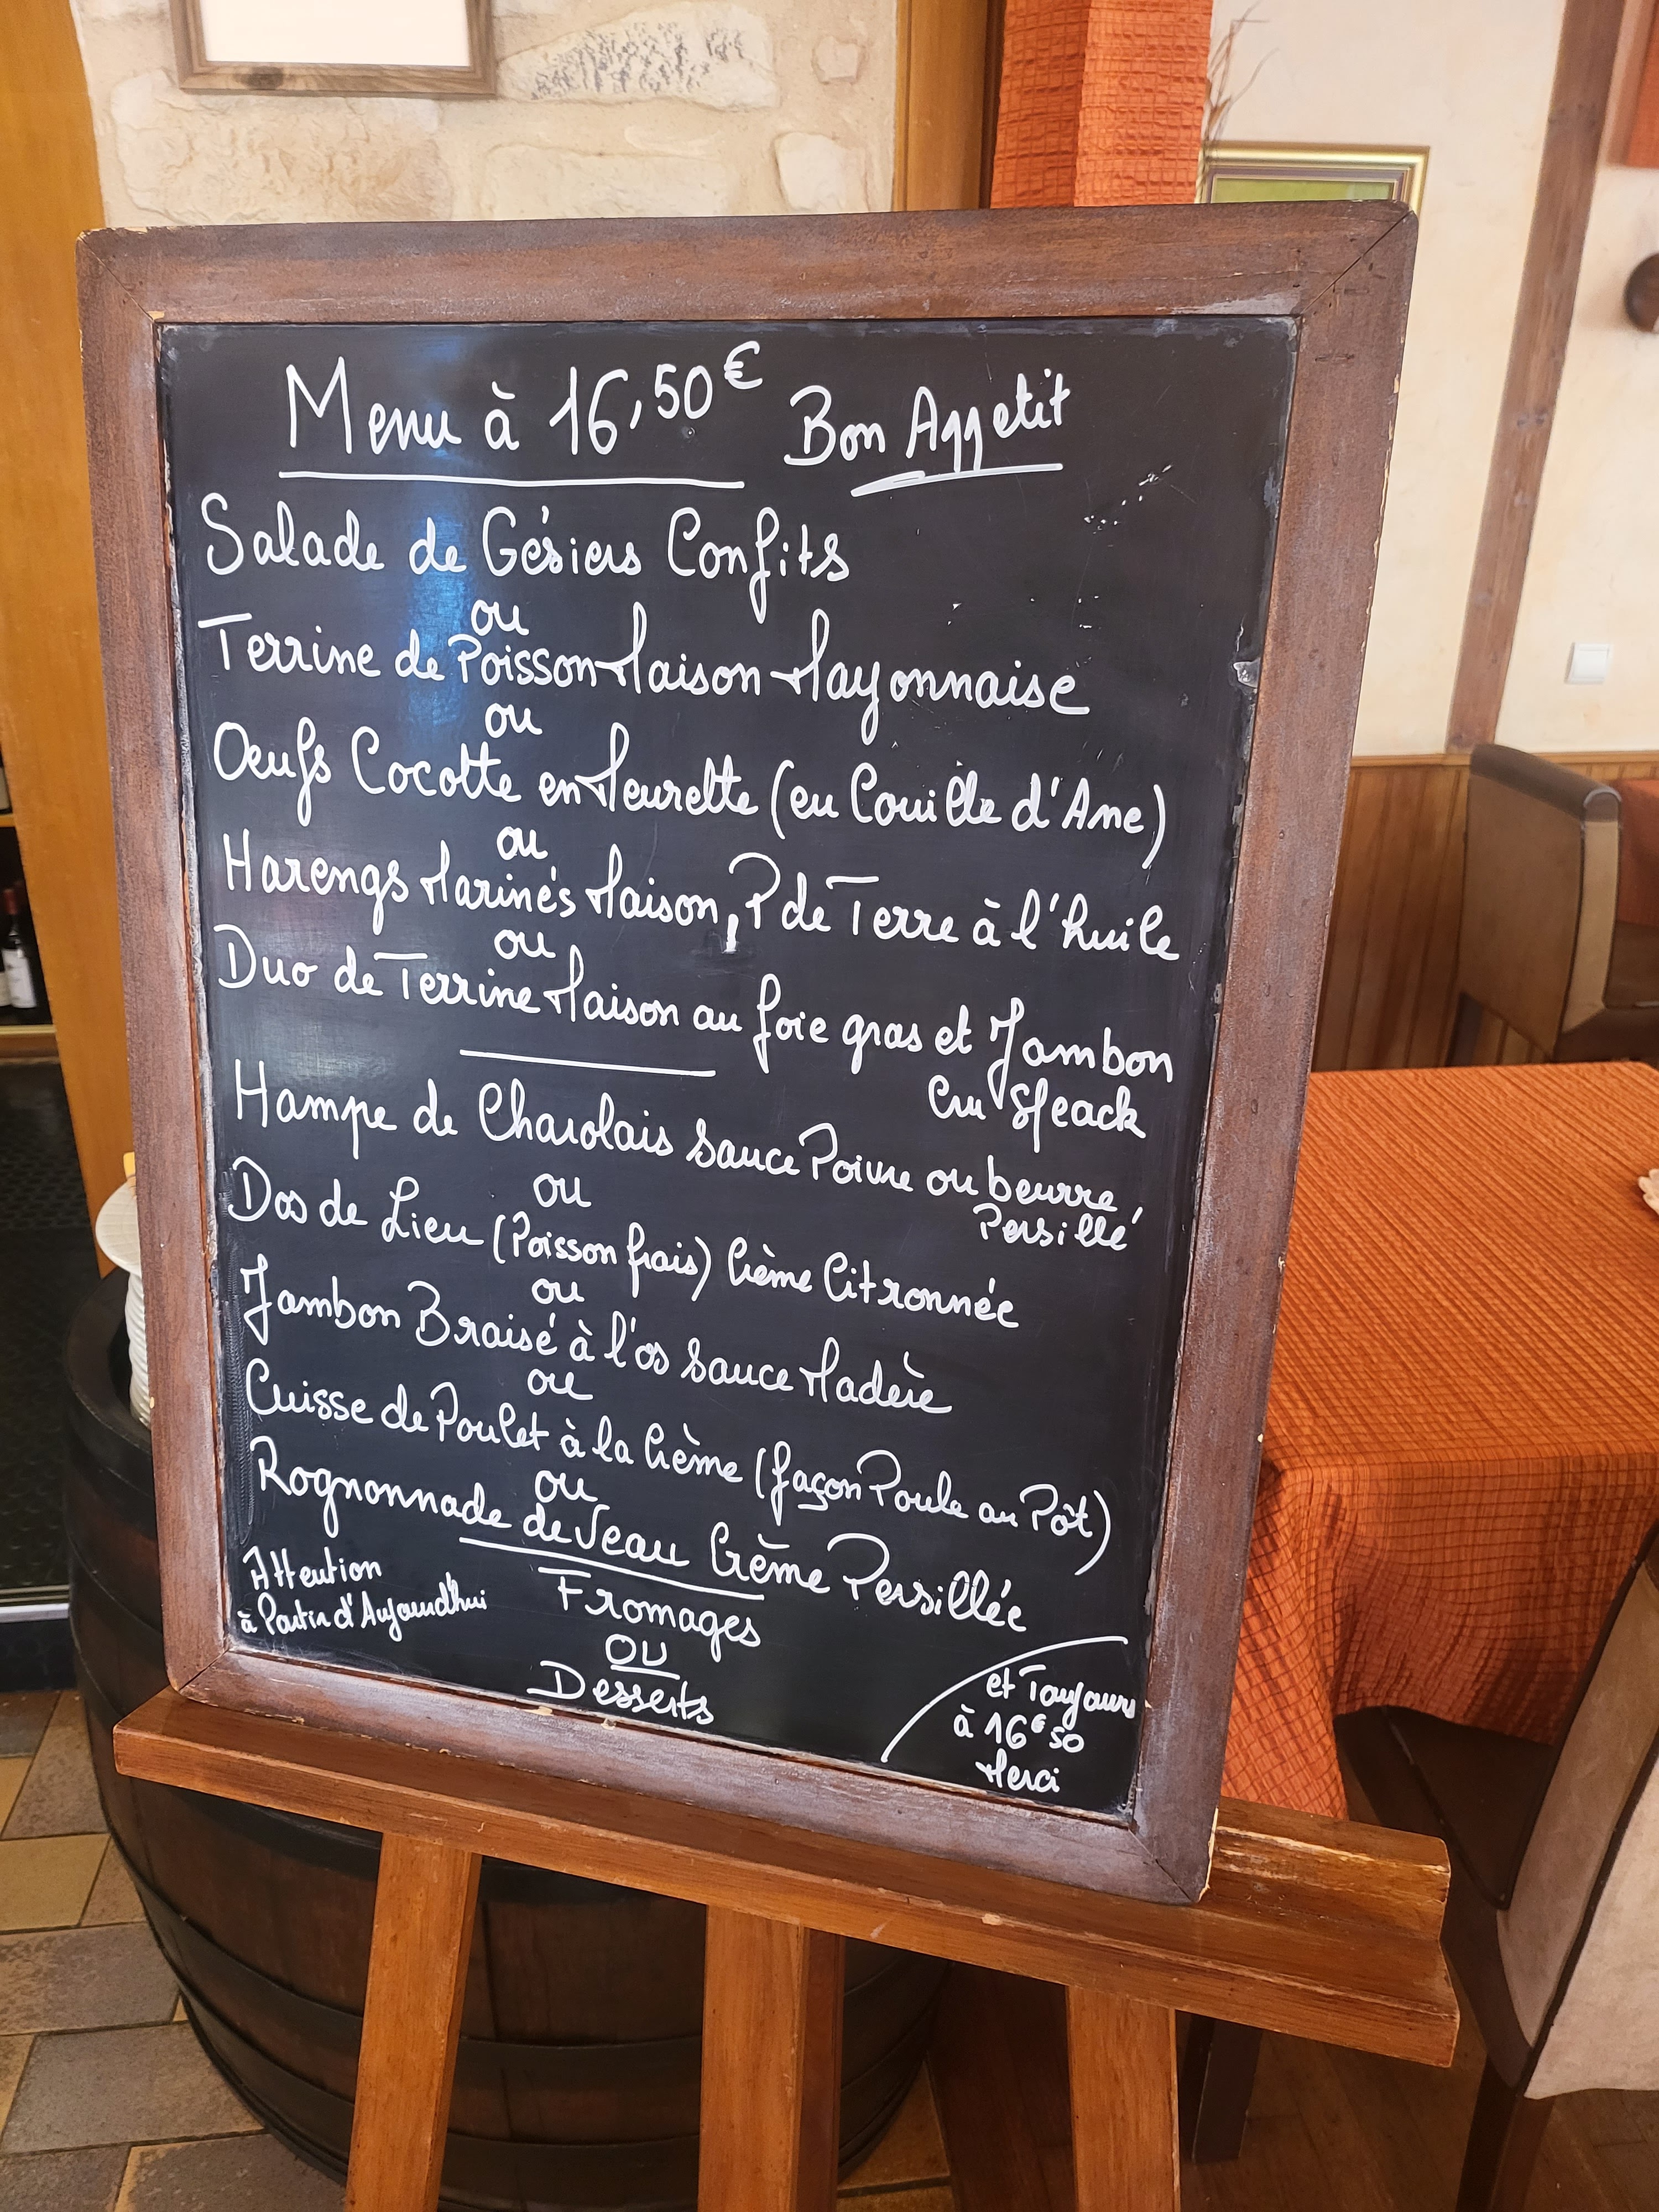 Menu à 16,50€ Bon Appetit
Salade de Gésiers Confits
ou
Terrine de Poisson Maison Mayonnaise
ou
Oeufs Cocotte en Meurette (eu Couille d'Ane)
ou
Harengs Marinés Maison, P de Terre à l'huile
ou
Duo de Terrine Maison au foie gras et Jambon
Cru Speack
Hampe de Charolais sauce Poivre ou beurre
Persillé
ou
Dos de Lieu (Poisson frais) Crème Citronnée
ou
Jambon Braisé à l'os sauce Madère
ou
Cuisse de Poulet à la Crème (façon Poule au Pôt)
ou
Rognonnade de Veau Crème Persillée
Attention
à Partir d'Aujourd'hui
Fromages
OU
Desserts
et Toujours
à 16€50
Merci